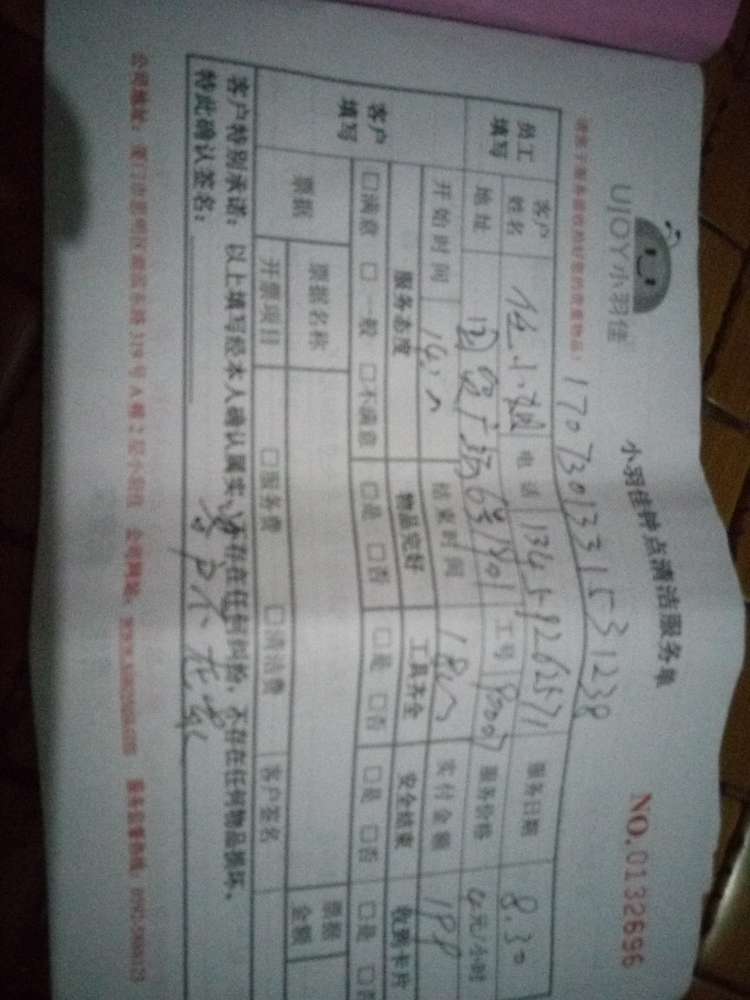 UJOY小羽佳
小羽佳钟点清洁服务单
NO.0132696
1707301331531238
员工填写
客户姓名
任小姐
电话
13459262571
服务日期
8.30
地址
国贸广场
1801
工号
服务价格
元/小时
客户填写
开始时间
14:
结束时间
18:
实付金额
198
服务态度
物品完好
工具齐全
安全结束
收到卡片
□满意 □一般 □不满意
□是 □否
□是 □否
□是 □否
□是 □否
票据
票据名称
票据金额
开票项目
□服务费
□清洁费
客户签名
客户特别承诺：以上填写经本人确认属实，不存在任何纠纷，不存在任何物品损坏，
特此确认签名：
客户不在家
公司地址：厦门市思明区
319号A幢2层小羽佳
公司网站：
服务监督热线：